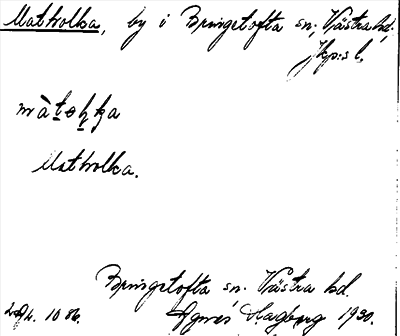 Matholka, by i Bringetofta sn; Västra hd;
Jkp:s l.
Matholka.
Bringetofta sn. Västra hd.
Agnes Hagberg 1930.